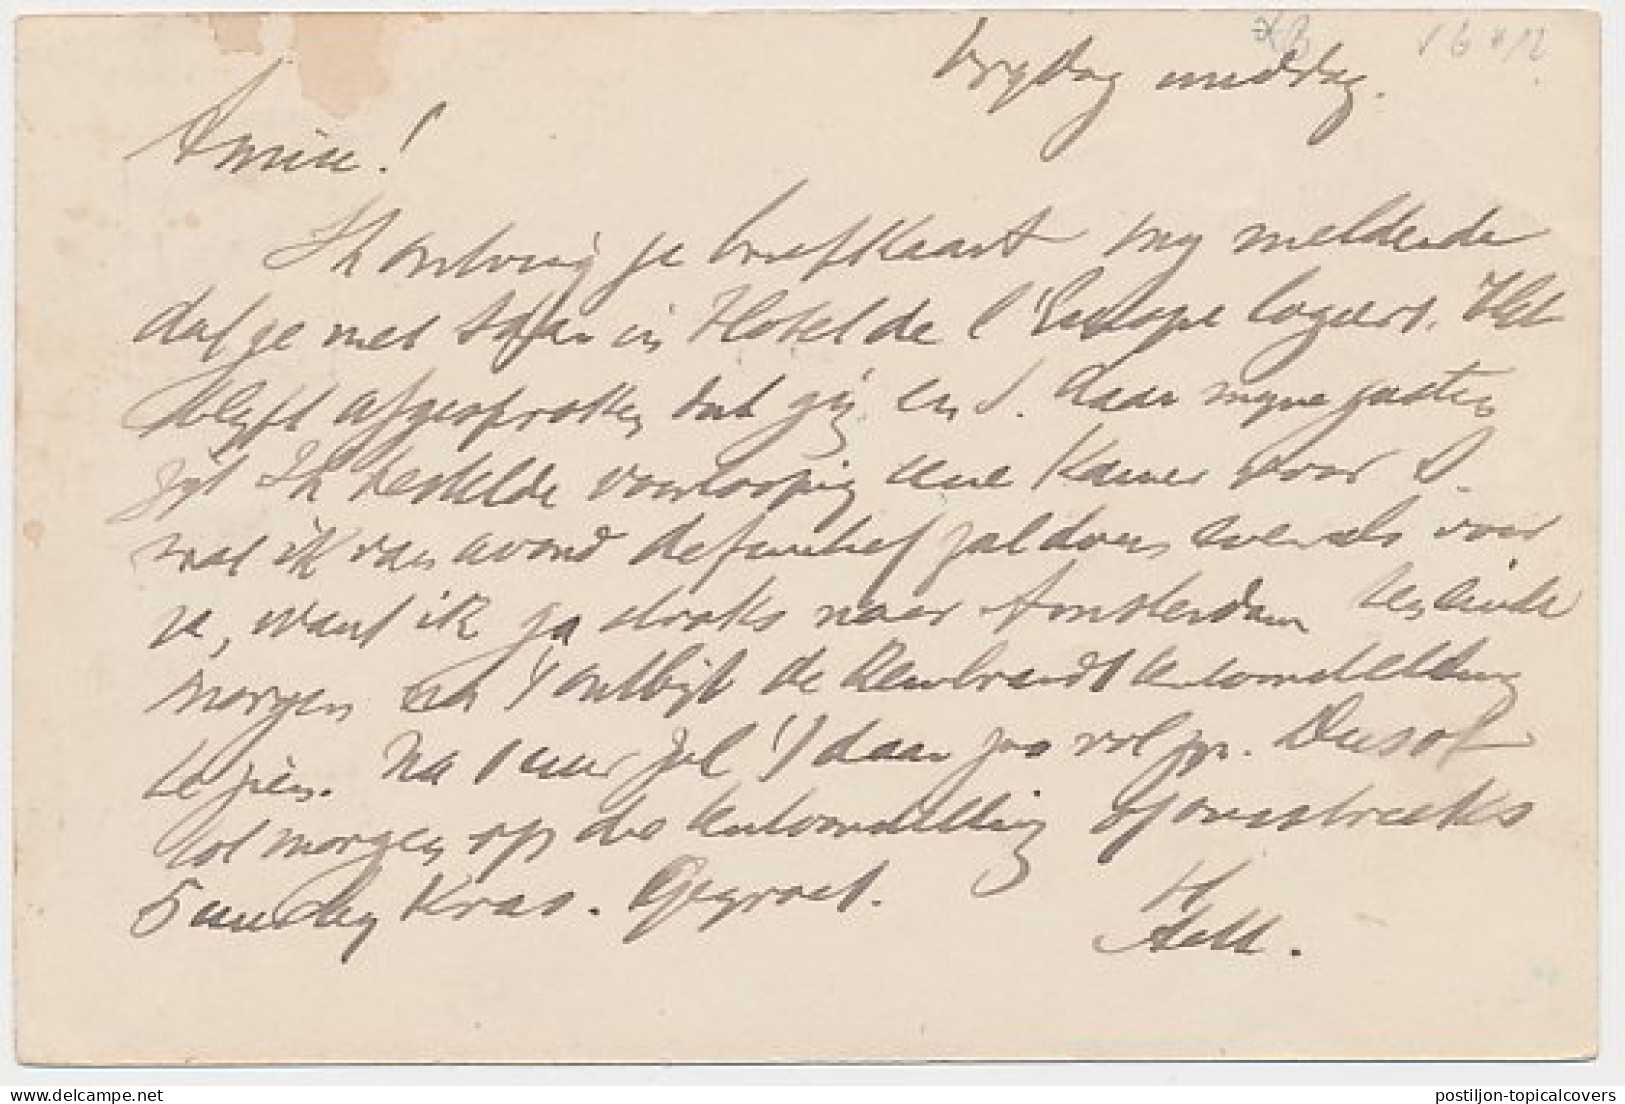 Vrydag middag.
Amice!
Ik ontving je briefkaart my meldende
dat ge met in Hotel de l'Europe logeert. Het
blyft afgesproken dat gij en S. daar myne gasten
zyt Ik bestelde voorloopig eene Kamer voor S.
wat ik van avond definitief zal doen evenals voor
u, want ik ga straks naar Amsterdam ten einde
morgen de Rembrandt tentoonstelling
te zien. Na 1 uur zal 't daar zoo vol zyn. Dus of
tot morgen op de tentoonstelling of
5 uur by Kras. Gegroet.
H
postiljon-topicalcovers
www.delcampe.net